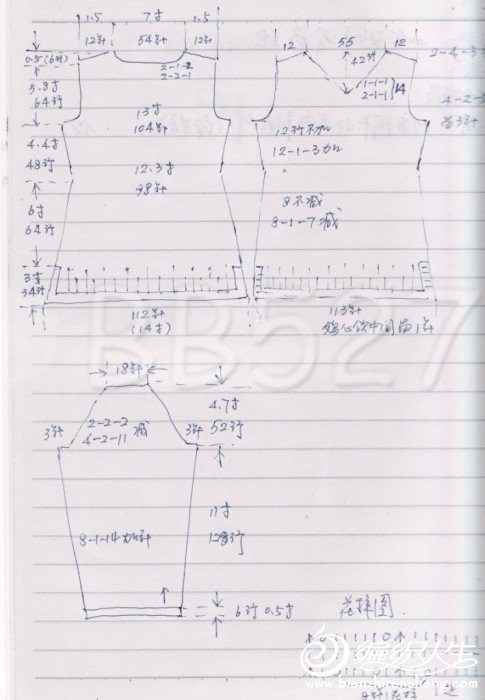 1.5 7寸 1.5
12针 54针 12针
0.5(6行)
2-1-2
2-2-1
5.8寸
64行
13寸
104针
4.4寸
48行
12.3寸
98针
6寸
64行
3寸
34行
112针
(14寸)
12 55 12
42行
2-4-3
1-1-1
2-1-1
14
4-2-
留3针
12行不加
12-1-3加
8不减
8-1-7减
113针
鸡心领中间留1针
18针
4.7寸
52行
2-2-2
4-2-11 减
3针 3针
11寸
128行
8-1-14加针
6行 0.5寸
花样图
BB527
编织人生